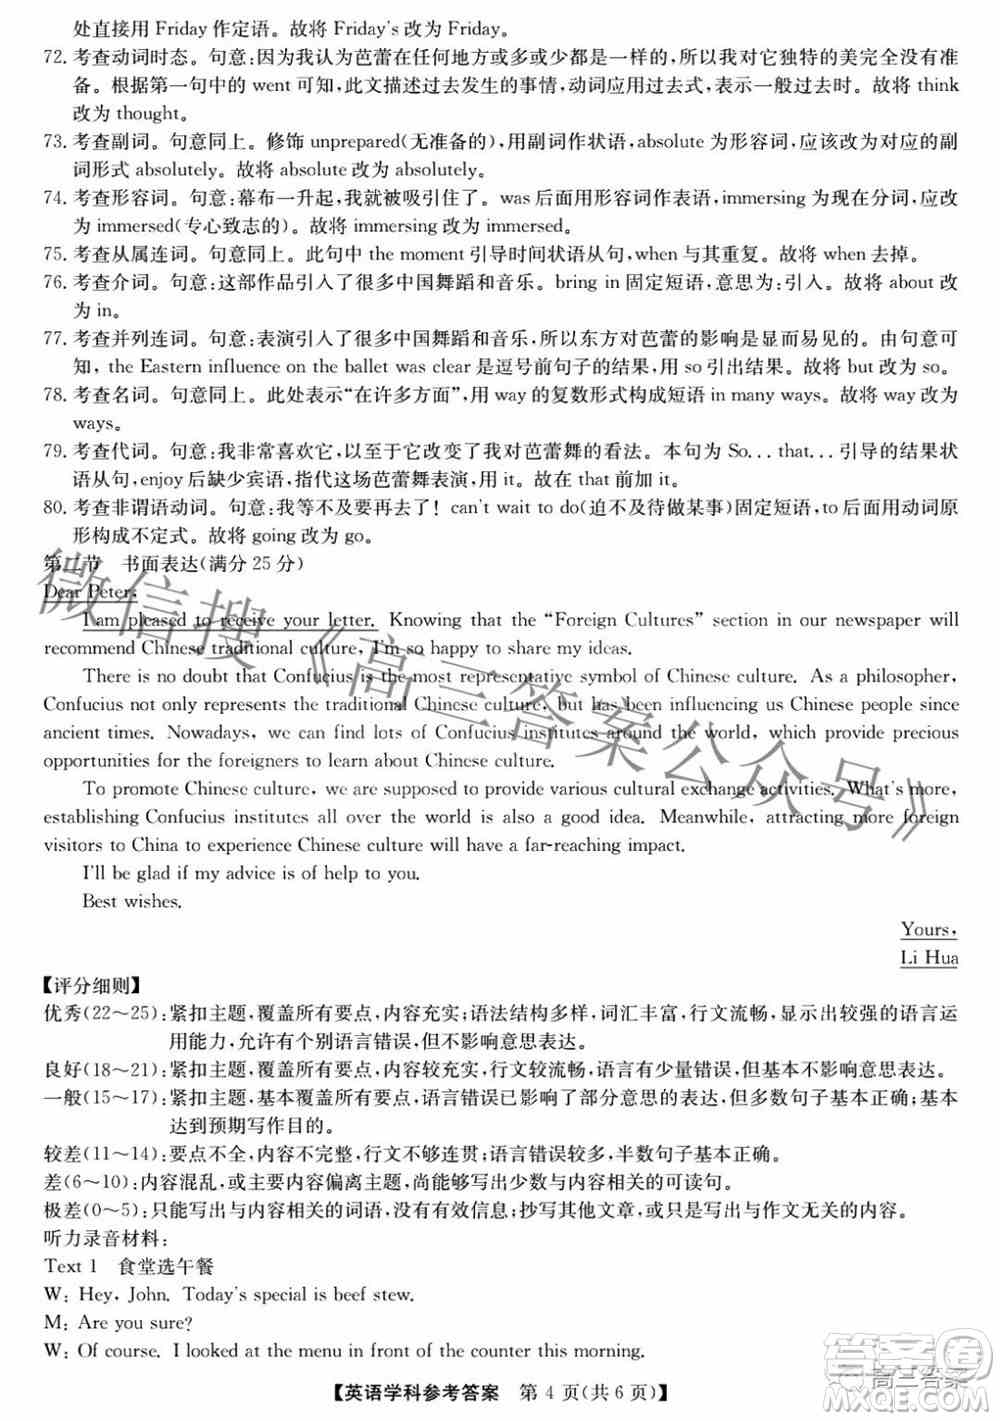 处直接用 Friday 作定语。故将 Friday's 改为 Friday。
72. 考查动词时态。句意:因为芭蕾在任何地方或多或少都是一样的,所以我对它独特的美完全没有准备。根据第一句中的 went 可知,此文描述过去发生的事情,动词应用过去或者一般过去时。故将 think 改为 thought。
73. 考查副词。句意同上。修饰 unprepared(无准备的),用副词作状语,absolute 为形容词,应该改为对应的副词形式 absolutely。故将 absolute 改为 absolutely。
74. 考查形容词。句意:幕布一升起,我就被吸引住了。was 后面用形容词作表语,immersing 为现在分词,应改为 immersed(专心致志的)。故将 immersing 改为 immersed。
75. 考查从属连词。句意同上。此句中 the moment 引导时间状语从句,when 与其重复。故将 when 去掉。
76. 考查介词。句意:这部作品引入了很多中国舞蹈和音乐。bring in 固定短语,意思为:引入。故将 about 改为 in。
77. 考查并列连词。句意:表演引入了很多中国舞蹈和音乐,所以东方对芭蕾的影响是显而易见的。由句意可知,the Eastern influence on the ballet was clear 是逗号前句子的结果,用 so 引出结果。故将 but 改为 so。
78. 考查名词。句意同上。此处表示“在许多方面”,用 way 的复数形式构成短语 in many ways。故将 way 改为 ways。
79. 考查代词。句意:我非常喜欢它,以至于它改变了我对芭蕾舞的看法。本句为 So... that...引导的结果状语从句,enjoy 后缺少宾语,指代这场芭蕾舞表演,用 it。故在 that 前加 it。
80. 考查非谓语动词。句意:我等不及要再去了!can't wait to do(迫不及待做某事)固定短语,to 后用动词原形构成不定式。故将 going 改为 go。
第二节 书面表达(满分 25 分)
Dear Peter,
I am pleased to receive your letter. Knowing that the “Foreign Cultures” section in our newspaper will
recommend Chinese traditional culture, I'm so happy to share my ideas.
There is no doubt that Confucius is the most representative symbol of Chinese culture. As a philosopher,
Confucius not only represents the traditional Chinese culture, but has been influencing Chinese people since
ancient times. Nowadays, we can find lots of Confucius institutes around the world, which provide precious
opportunities for the foreigners to learn about Chinese culture.
To promote Chinese culture, we are supposed to provide various cultural exchange activities. What's more,
establishing Confucius institutes all over the world is also a good idea. Meanwhile, attracting more foreign
visitors to China to experience Chinese culture will have a far-reaching impact.
I'll be glad if my advice is of help to you.
Best wishes.
Yours,
Li Hua
【评分细则】
优秀(22～25):紧扣主题,覆盖所有要点,内容充实;语法结构多样,词汇丰富,行文流畅,显示出较强的语言运用能力,允许有个别语言错误,但不影响意思表达。
良好(18～21):紧扣主题,覆盖所有要点,内容较充实,行文较流畅,语言有少量错误,但基本不影响意思表达。
一般(15～17):紧扣主题,基本覆盖所有要点,语言错误已影响了部分意思的表达,但多数句子基本正确,基本达到预期写作目的。
较差(11～14):要点不全,内容不完整,行文不够连贯;语言错误较多,半数句子基本正确。
差(6～10):内容混乱,或主要内容偏离主题,尚能够写出少数与内容相关的可读句。
极差(0～5):只能写出与内容相关的词语,没有有效信息;抄写其他文章,或只是写出与作文无关的内容。
听力录音材料:
Text 1 食堂选午餐
W: Hey, John. Today's special is beef stew.
M: Are you sure?
W: Of course. I looked at the menu in the front of the counter this morning.
【英语学科参考答案 第 4 页(共 6 页)】
微信搜《高三答案公众号》
答案圈
高三答案
MXQE.COM